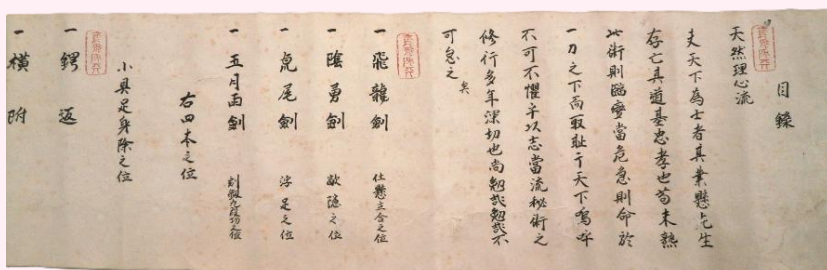 目錄
天然理心流
夫天下為士者其業懸於生
存亡其道基忠孝也苟未熟
此術則臨變當危急則命於
一刀之下而取耻于天下嗚呼
不可不懼乎以志當流秘術之
修行多年深切也尚勉哉勉哉不
可怠之矣
一飛龍劍 仕懸立合之位
一陰勇劍 敵隱之位
一虎尾劍 浮足之位
一五月雨劍 之位
右四本之位
小具足身除之位
一鍔返
一橫附